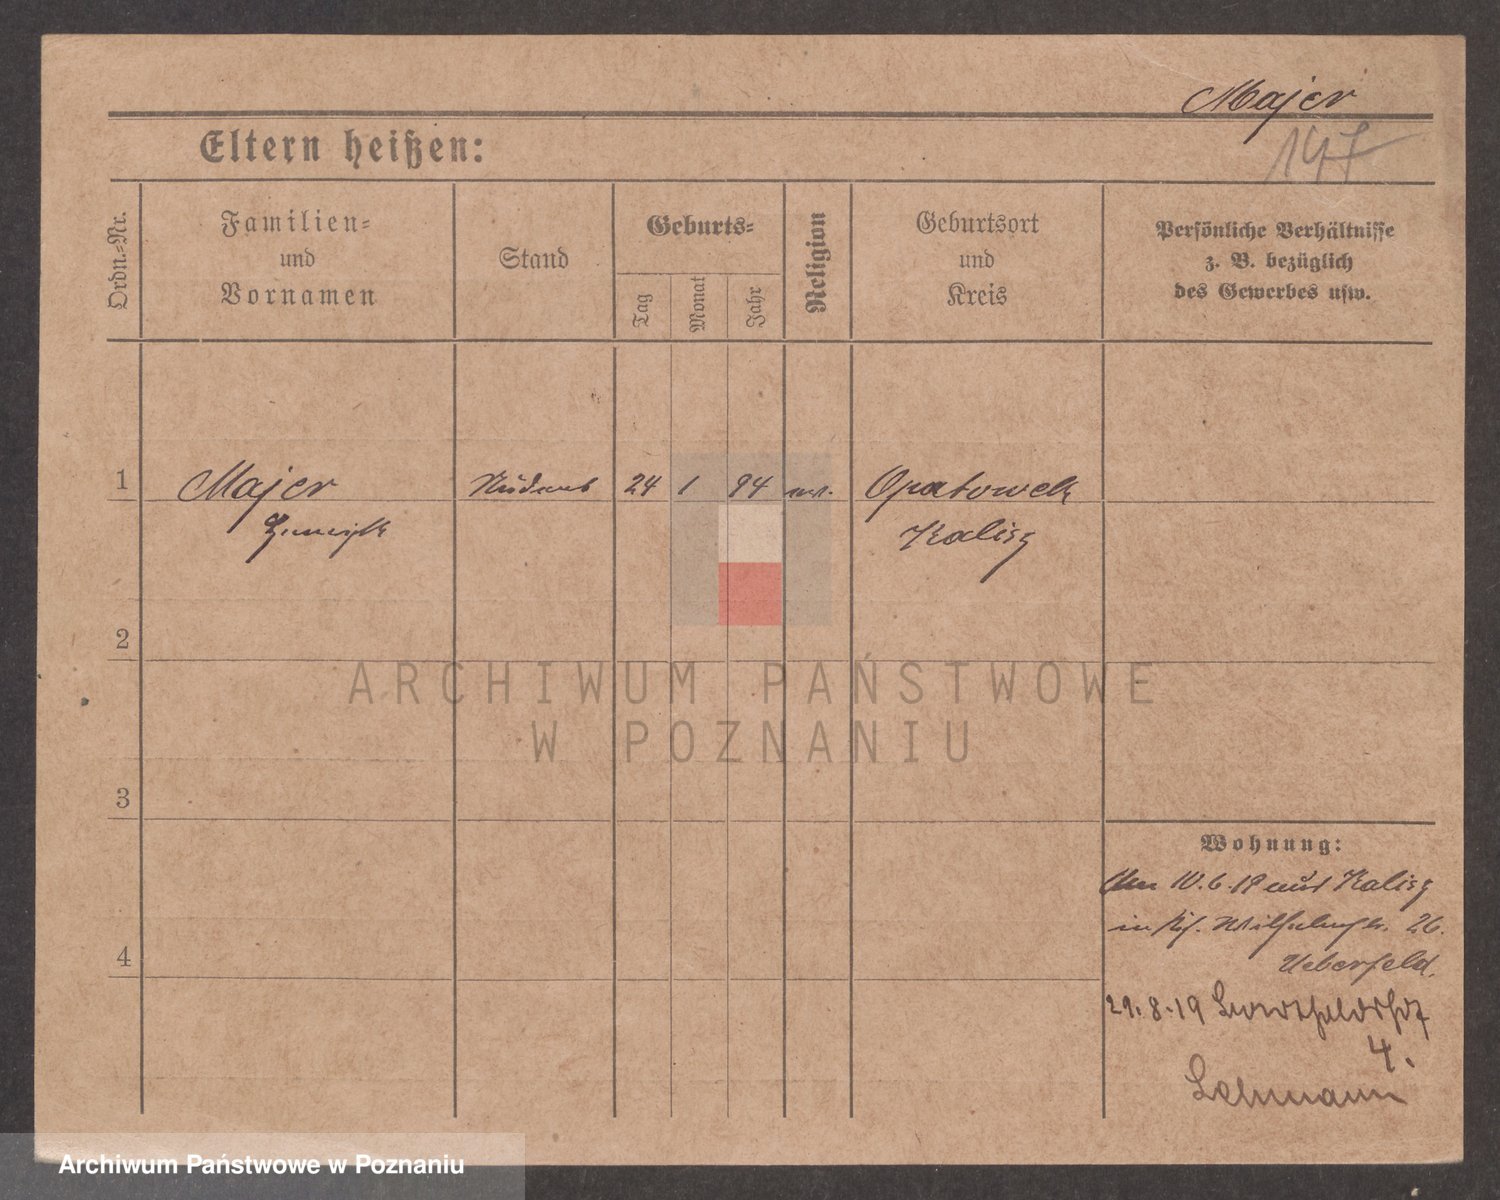 Majer
147
Eltern heißen:
Ordn.-Nr.
Familien-
und
Vornamen
Stand
Geburts-
Tag
Monat
Jahr
Religion
Geburtsort
und
Kreis
Persönliche Verhältnisse
z. B. bezüglich
des Gewerbes usw.
1
Majer
Student
24
1
94
Opatowek
Kalisz
2
3
4
Wohnung:
Am 10.6.19 aus Kalisz
in 26.
Ueberfeld.
29.8.19
4.
Lehmann
ARCHIWUM PAŃSTWOWE
W POZNANIU
Archiwum Państwowe w Poznaniu